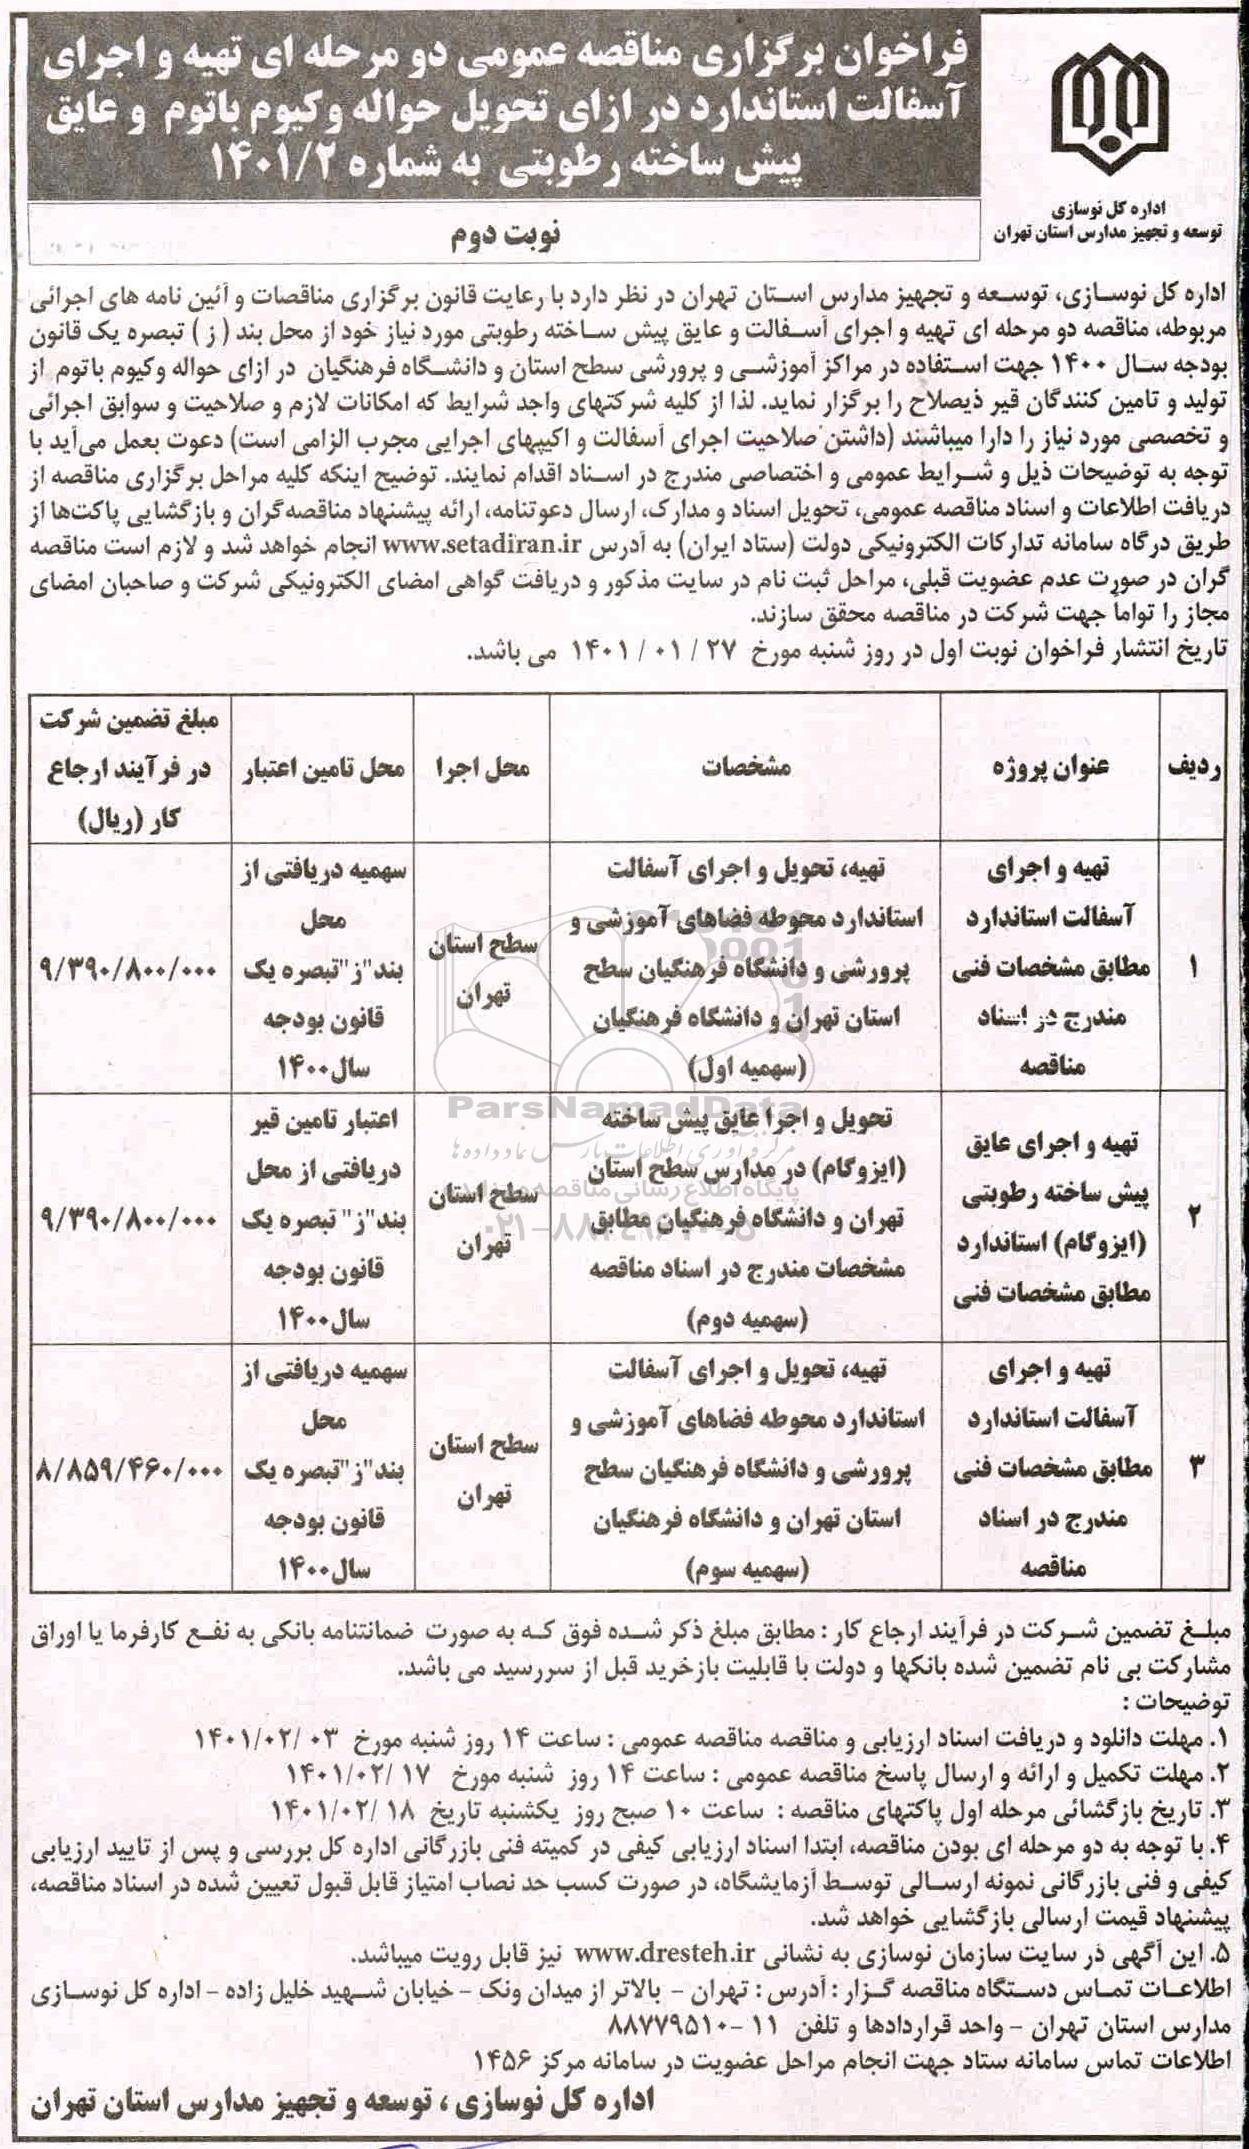 فراخوان برگزاری مناقصه عمومی دو مرحله ای تهیه و اجرای
آسفالت استاندارد در ازای تحویل حواله وکیوم باتوم و عایق
پیش ساخته رطوبتی به شماره ۱۴۰۱/۲
اداره کل نوسازی
توسعه و تجهیز مدارس استان تهران
نوبت دوم
اداره کل نوسازی، توسعه و تجهیز مدارس استان تهران در نظر دارد با رعایت قانون برگزاری مناقصات و آئین نامه های اجرائی
مربوطه، مناقصه دو مرحله ای تهیه و اجرای آسفالت و عایق پیش ساخته رطوبتی مورد نیاز خود از محل بند ( ز ) تبصره یک قانون
بودجه سال ۱۴۰۰ جهت استفاده در مراکز آموزشی و پرورشی سطح استان و دانشگاه فرهنگیان در ازای حواله وکیوم باتوم از
تولید و تامین کنندگان قیر ذیصلاح را برگزار نماید. لذا از کلیه شرکتهای واجد شرایط که امکانات لازم و صلاحیت و سوابق اجرائی
و تخصصی مورد نیاز را دارا میباشند (داشتن صلاحیت اجرای آسفالت و اکیپهای اجرایی مجرب الزامی است) دعوت بعمل می‌آید با
توجه به توضیحات ذیل و شرایط عمومی و اختصاصی مندرج در اسناد اقدام نمایند. توضیح اینکه کلیه مراحل برگزاری مناقصه از
دریافت اطلاعات و اسناد مناقصه عمومی، تحویل اسناد و مدارک، ارسال دعوتنامه، ارائه پیشنهاد مناقصه‌گران و بازگشایی پاکت‌ها از
طریق درگاه سامانه تدارکات الکترونیکی دولت (ستاد ایران) به آدرس www.setadiran.ir انجام خواهد شد و لازم است مناقصه
گران در صورت عدم عضویت قبلی، مراحل ثبت نام در سایت مذکور و دریافت گواهی امضای الکترونیکی شرکت و صاحبان امضای
مجاز را تواماً جهت شرکت در مناقصه محقق سازند.
تاریخ انتشار فراخوان نوبت اول در روز شنبه مورخ ۲۷ / ۰۱ / ۱۴۰۱ می باشد.
ردیف
عنوان پروژه
مشخصات
محل اجرا
محل تامین اعتبار
مبلغ تضمین شرکت
در فرآیند ارجاع
کار (ریال)
۱
تهیه و اجرای
آسفالت استاندارد
مطابق مشخصات فنی
مندرج در اسناد
مناقصه
تهیه، تحویل و اجرای آسفالت
استاندارد محوطه فضاهای آموزشی و
پرورشی و دانشگاه فرهنگیان سطح
استان تهران و دانشگاه فرهنگیان
(سهمیه اول)
سطح استان
تهران
سهمیه دریافتی از
محل
بند"ز"تبصره یک
قانون بودجه
سال۱۴۰۰
۹/۳۹۰/۸۰۰/۰۰۰
۲
تهیه و اجرای عایق
پیش ساخته رطوبتی
(ایزوگام) استاندارد
مطابق مشخصات فنی
تحویل و اجرا عایق پیش ساخته
(ایزوگام) در مدارس سطح استان
تهران و دانشگاه فرهنگیان مطابق
مشخصات مندرج در اسناد مناقصه
(سهمیه دوم)
سطح استان
تهران
اعتبار تامین قیر
دریافتی از محل
بند"ز" تبصره یک
قانون بودجه
سال۱۴۰۰
۹/۳۹۰/۸۰۰/۰۰۰
۳
تهیه و اجرای
آسفالت استاندارد
مطابق مشخصات فنی
مندرج در اسناد
مناقصه
تهیه، تحویل و اجرای آسفالت
استاندارد محوطه فضاهای آموزشی و
پرورشی و دانشگاه فرهنگیان سطح
استان تهران و دانشگاه فرهنگیان
(سهمیه سوم)
سطح استان
تهران
سهمیه دریافتی از
محل
بند"ز"تبصره یک
قانون بودجه
سال۱۴۰۰
۸/۸۵۹/۴۶۰/۰۰۰
ParsNamadData
مرکز فرآوری اطلاعات پارس نماد داده‌ها
پایگاه اطلاع رسانی مناقصه
مبلغ تضمین شرکت در فرآیند ارجاع کار : مطابق مبلغ ذکر شده فوق که به صورت ضمانتنامه بانکی به نفع کارفرما یا اوراق
مشارکت بی نام تضمین شده بانکها و دولت با قابلیت بازخرید قبل از سررسید می باشد.
توضیحات :
۱. مهلت دانلود و دریافت اسناد ارزیابی و مناقصه مناقصه عمومی : ساعت ۱۴ روز شنبه مورخ ۰۳ /۱۴۰۱/۰۲
۲. مهلت تکمیل و ارائه و ارسال پاسخ مناقصه عمومی : ساعت ۱۴ روز شنبه مورخ ۱۷ /۱۴۰۱/۰۲
۳. تاریخ بازگشائی مرحله اول پاکتهای مناقصه : ساعت ۱۰ صبح روز یکشنبه تاریخ ۱۸ /۱۴۰۱/۰۲
۴. با توجه به دو مرحله ای بودن مناقصه، ابتدا اسناد ارزیابی کیفی در کمیته فنی بازرگانی اداره کل بررسی و پس از تایید ارزیابی
کیفی و فنی بازرگانی نمونه ارسالی توسط آزمایشگاه، در صورت کسب حد نصاب امتیاز قابل قبول تعیین شده در اسناد مناقصه،
پیشنهاد قیمت ارسالی بازگشایی خواهد شد.
۵. این آگهی در سایت سازمان نوسازی به نشانی www.dresteh.ir نیز قابل رویت میباشد.
اطلاعات تماس دستگاه مناقصه گزار : آدرس : تهران - بالاتر از میدان ونک - خیابان شهید خلیل زاده - اداره کل نوسازی
مدارس استان تهران - واحد قراردادها و تلفن ۱۱ -۸۸۷۷۹۵۱۰
اطلاعات تماس سامانه ستاد جهت انجام مراحل عضویت در سامانه مرکز ۱۴۵۶
اداره کل نوسازی ، توسعه و تجهیز مدارس استان تهران